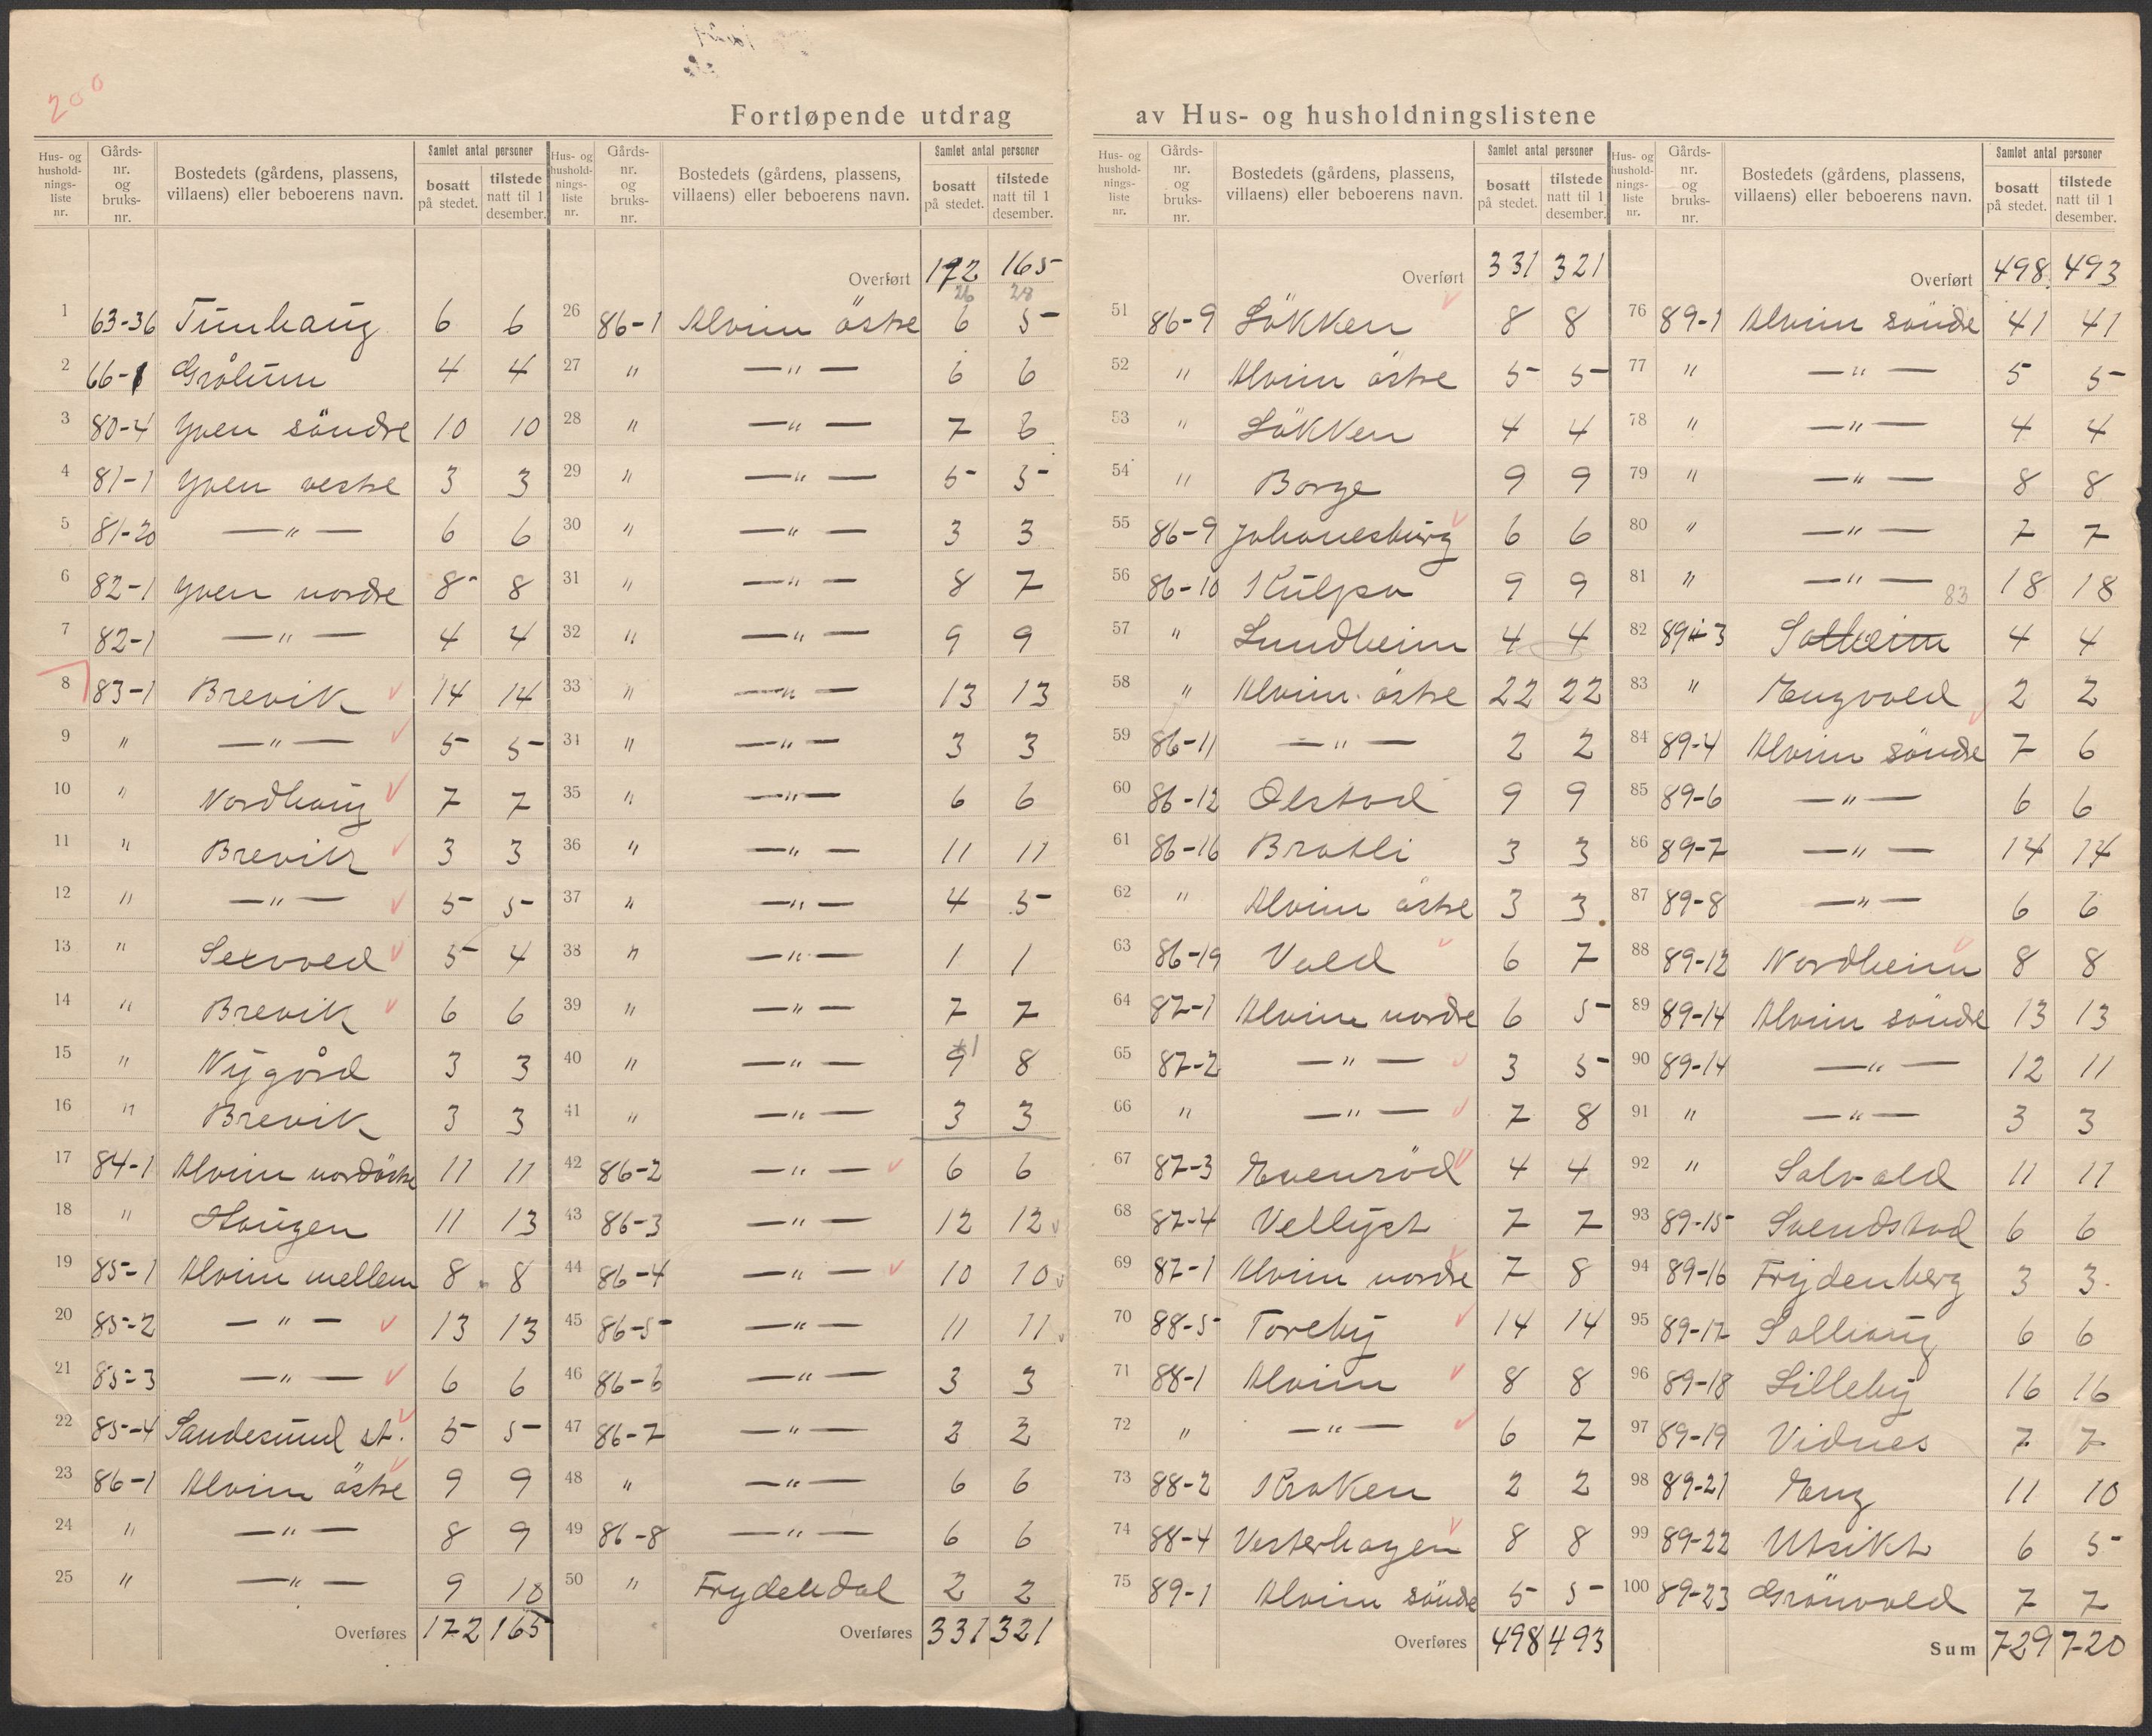 200
Fortløpende utdrag av Hus- og husholdningslistene
Hus- og hushold-nings-liste nr. Gårds-nr. og bruks-nr. Bostedets (gårdens, plassens, villaens) eller beboerens navn. Samlet antal personer bosatt på stedet. tilstede natt til 1 desember.
1 63-36 Tunhaug 6 6
2 66-1 Grålum 4 4
3 80-4 Yven söndre 10 10
4 81-1 Yven vestre 3 3
5 81-20 —"— 6 6
6 82-1 Yven nordre 8 8
7 82-1 —"— 4 4
8 83-1 Brevik 14 14
9 " —"— 5 5
10 " Nordhaug 7 7
11 " Brevik 3 3
12 " —"— 5 5
13 " 5 4
14 " Brevik 6 6
15 " Nygård 3 3
16 " Brevik 3 3
17 84-1 Alvim nordöstre 11 11
18 " Haugen 11 13
19 85-1 Alvim mellem 8 8
20 85-2 —"— 13 13
21 85-3 —"— 6 6
22 85-4 Sandesund st. 5 5
23 86-1 Alvim östre 9 9
24 " —"— 8 9
25 " —"— 9 10
Overføres 172 165
Hus- og hushold-nings-liste nr. Gårds-nr. og bruks-nr. Bostedets (gårdens, plassens, villaens) eller beboerens navn. Samlet antal personer bosatt på stedet. tilstede natt til 1 desember.
Overført 172 165
26 28
26 86-1 Alvim östre 6 5
27 " —"— 6 6
28 " —"— 7 6
29 " —"— 5 5
30 " —"— 3 3
31 " —"— 8 7
32 " —"— 9 9
33 " —"— 13 13
34 " —"— 3 3
35 " —"— 6 6
36 " —"— 11 11
37 " —"— 4 5
38 " —"— 1 1
39 " —"— 7 7
40 " —"— 9 8
41 " —"— 3 3
42 86-2 —"— 6 6
43 86-3 —"— 12 12
44 86-4 —"— 10 10
45 86-5 —"— 11 11
46 86-6 —"— 3 3
47 86-7 —"— 2 2
48 " —"— 6 6
49 86-8 —"— 6 6
50 " Frydendal 2 2
Overføres 331 321
Hus- og hushold-nings-liste nr. Gårds-nr. og bruks-nr. Bostedets (gårdens, plassens, villaens) eller beboerens navn. Samlet antal personer bosatt på stedet. tilstede natt til 1 desember.
Overført 331 321
51 86-9 Lökken 8 8
52 " Alvim östre 5 5
53 " Lökken 4 4
54 " Borge 9 9
55 86-9 Johanesburg 6 6
56 86-10 Kulpen 9 9
57 " Lundheim 4 4
58 " Alvim östre 22 22
59 86-11 —"— 2 2
60 86-12 Ølstad 9 9
61 86-16 Bratli 3 3
62 " Alvim östre 3 3
63 86-19 Vold 6 7
64 87-1 Alvim nordre 6 5
65 87-2 —"— 3 5
66 " —"— 7 8
67 87-3 Evenröd 4 4
68 87-4 Vellyst 7 7
69 87-1 Alvim nordre 7 8
70 88-5 Toreby 14 14
71 88-1 Alvim 8 8
72 " —"— 6 7
73 88-2 Kroken 2 2
74 88-4 Vesterhagen 8 8
75 89-1 Alvim söndre 5 5
Overføres 498 493
Hus- og hushold-nings-liste nr. Gårds-nr. og bruks-nr. Bostedets (gårdens, plassens, villaens) eller beboerens navn. Samlet antal personer bosatt på stedet. tilstede natt til 1 desember.
Overført 498 493
76 89-1 Alvim söndre 41 41
77 " —"— 5 5
78 " —"— 4 4
79 " —"— 8 8
80 " —"— 7 7
81 " —"— 83 18 18
82 89-3 Solheim 4 4
83 " Engvold 2 2
84 89-4 Alvim söndre 7 6
85 89-6 —"— 6 6
86 89-7 —"— 14 14
87 89-8 —"— 6 6
88 89-12 Nordheim 8 8
89 89-14 Alvim söndre 13 13
90 89-14 —"— 12 11
91 " —"— 3 3
92 " Solvold 11 11
93 89-15 Svendstad 6 6
94 89-16 Frydenberg 3 3
95 89-17 Solhaug 6 6
96 89-18 Lilleby 16 16
97 89-19 Vidnes 7 7
98 89-21 Eng 11 10
99 89-22 Utsikt 6 5
100 89-23 Grönvold 7 7
Sum 729 720